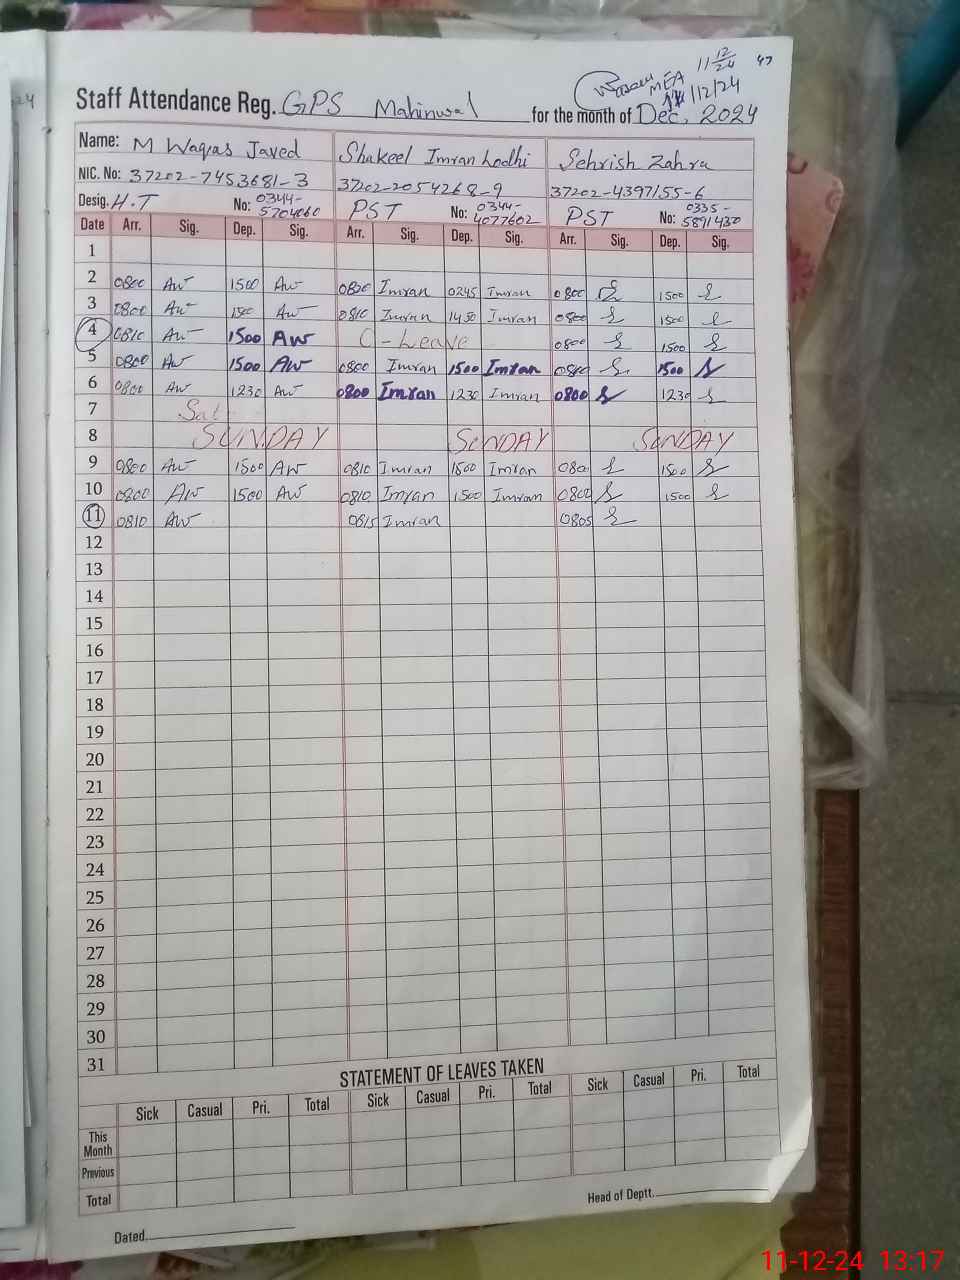 11 12/24 47
MEA
11/12/24
Staff Attendance Reg. GPS Mahinwal for the month of Dec, 2024
Name: M Waqas Javed Shakeel Imran Lodhi Sehrish Zahra
NIC. No: 37202-7453681-3 37202-2054268-9 37202-4397155-6
Desig. H.T No: 0344-5704060 PST No: 0344-4077602 PST No: 0335-5891430
Date Arr. Sig. Dep. Sig. Arr. Sig. Dep. Sig. Arr. Sig. Dep. Sig.
1
2 0800 AW 1500 AW 0820 Imran 0245 Imran 0800 1500
3 0800 AW 1500 AW 0810 Imran 1450 Imran 0800 1500
4 0810 AW 1500 AW C-Leave 0800 1500
5 0800 AW 1500 AW 0800 Imran 1500 Imran 0800 1500
6 0800 AW 1230 AW 0800 Imran 1230 Imran 0800 1230
7 Sat
8 SUNDAY SUNDAY SUNDAY
9 0800 AW 1500 AW 0810 Imran 1500 Imran 0800 1500
10 0800 AW 1500 AW 0810 Imran 1500 Imran 0800 1500
11 0810 AW 0815 Imran 0805
12
13
14
15
16
17
18
19
20
21
22
23
24
25
26
27
28
29
30
31
STATEMENT OF LEAVES TAKEN
Sick Casual Pri. Total Sick Casual Pri. Total Sick Casual Pri. Total
This Month
Previous
Total
Dated Head of Deptt.
11-12-24 13:17